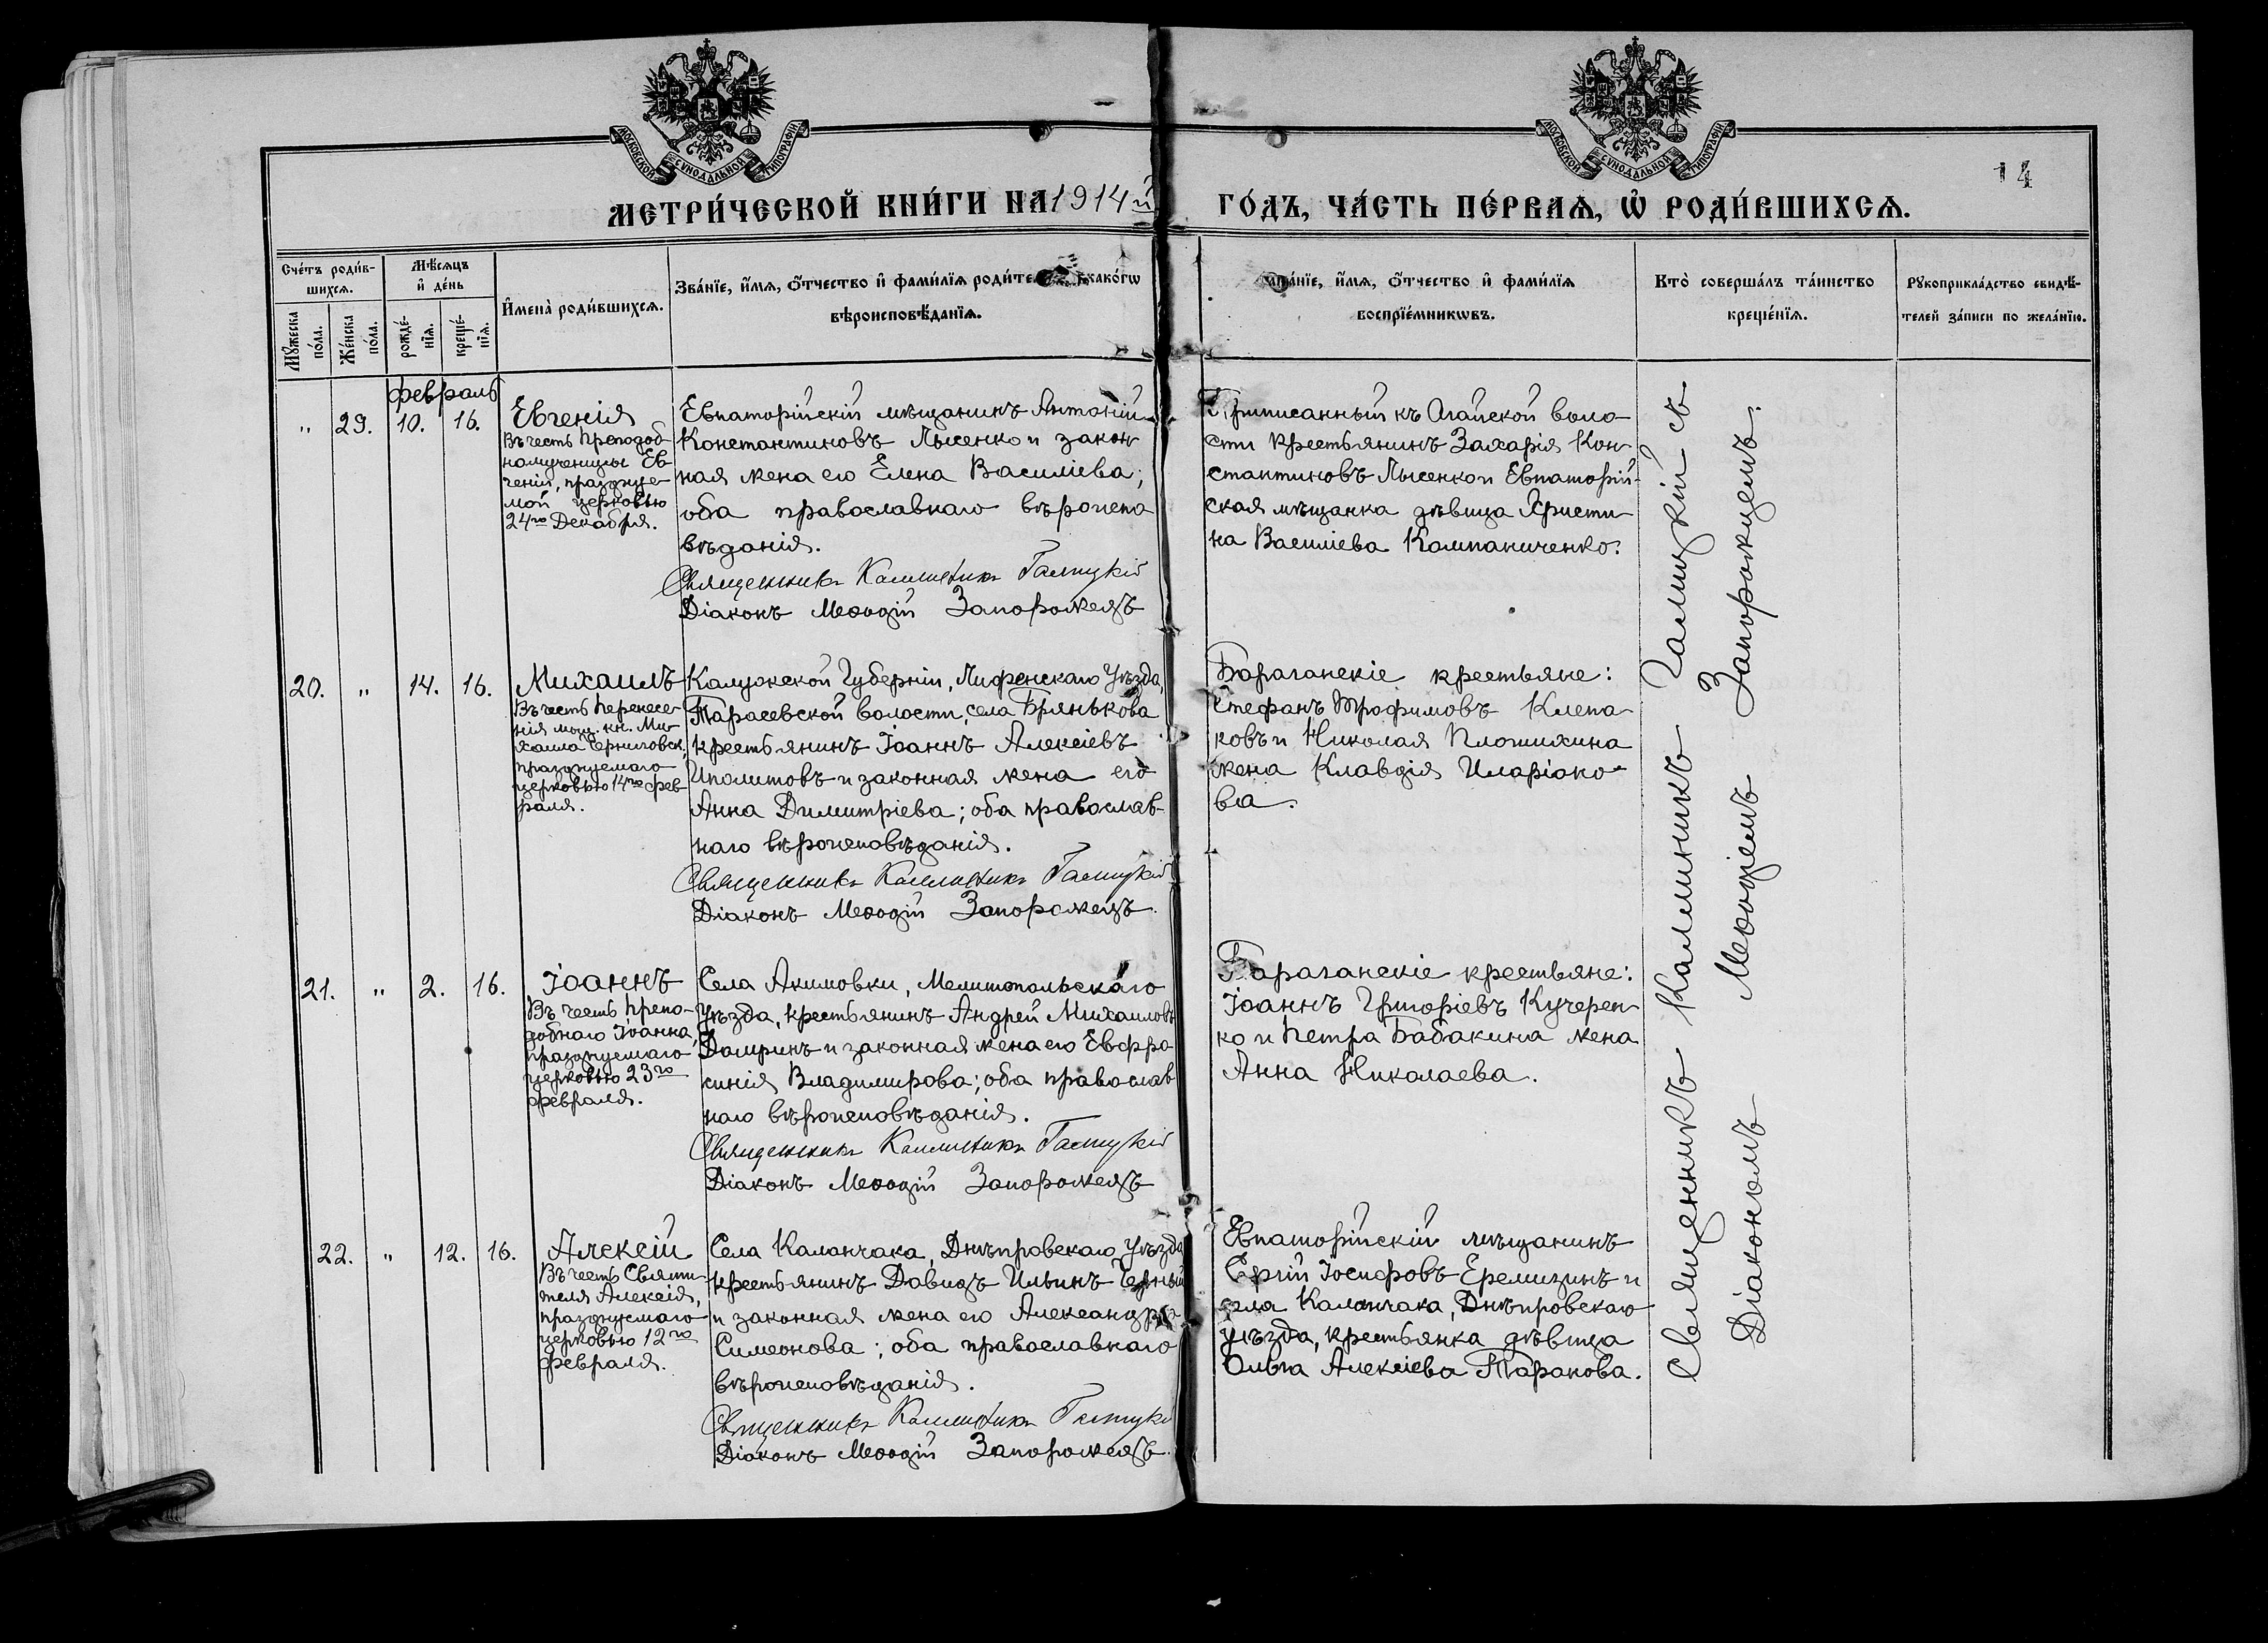 МОСКОВСКОЙ СѴНОДАЛЬНОЙ ТИПОГРАФІИ
МОСКОВСКОЙ СѴНОДАЛЬНОЙ ТИПОГРАФІИ
14
МЕТРИ́ЧЕСКОЙ КНИ́ГИ НА 1914 й
ГО́ДЪ, ЧА́СТЬ ПЕ́РВАѦ, Ѡ҆ РОДИ́ВШИХСѦ.
Сче́тъ роди́в-
шихсѧ.
Мꙋ́жеска
по́ла.
Же́нска
по́ла.
Мѣ́сѧцъ
и҆ де́нь
рожде́-
нїѧ.
креще́-
нїѧ.
И҆мена̀ роди́вшихсѧ.
Зва́нїе, и҆́мѧ, ѻ҆́тчество и҆ фами́лїѧ роди́те како́гѡ
вѣроисповѣ́данїѧ.
Зва́нїе, и҆́мѧ, ѻ҆́тчество и҆ фами́лїѧ
воспрїе́мникѡвъ.
Кто̀ соверша́лъ та́инство
креще́нїѧ.
Рꙋкоприкла́дство свидѣ́-
телей за́писи по жела́нїю.
февраль
" 29. 10. 16.
Евгенія
Въ честь Преподоб-
номученицы Ев-
геніи, празднуе-
мой церковью
24го Декабря.
Евпаторійскій мѣщанинъ Антоній
Константиновъ Лысенко и закон-
ная жена его Елена Василіева;
оба православнаго вѣроиспо-
вѣданія.
Священникъ Каллиникъ Галицкій
Діаконъ Меѳодій Запорожецъ
Приписанный къ Агайской воло-
сти крестьянинъ Захарія Кон-
стантиновъ Лысенко и Евпаторій-
ская мѣщанка дѣвица Христи-
на Василіева Компаниченко.
20. " 14. 16.
Михаилъ
Въ честь Перенесе-
нія мощ. кн. Ми-
хаила Черниговск,
празднуемаго
церковью 14го фев-
раля.
Калужской Губерніи, Уѣзда,
Тарасевской волости, села Брянькова
крестьянинъ Іоаннъ Алексіевъ
Иполитовъ и законная жена его
Анна Димитріева; оба православ-
наго вѣроисповѣданія.
Священникъ Каллиникъ Галицкій
Діаконъ Меѳодій Запорожецъ.
Бараганскіе крестьяне:
Стефанъ Трофимовъ Клепа-
ковъ и Николая Плотихина
жена Клавдія Иларіоно-
ва.
21. " 2. 16.
Іоаннъ
Въ честь Препо-
добнаго Іоанна,
празднуемаго
церковью 23го
февраля.
Села Акимовки, Мелитопольскаго
Уѣзда, крестьянинъ Андрей Михаиловъ
Дашринъ и законная жена его Евфро-
синія Владимирова; оба православ-
наго вѣроисповѣданія.
Священникъ Каллиникъ Галицкій
Діаконъ Меѳодій Запорожецъ
Бараганскіе крестьяне:
Іоаннъ Григоріевъ Кучерен-
ко и Петра Бабакина жена
Анна Николаева.
22. " 12. 16.
Алексій
Въ честь Святи-
теля Алексія,
празднуемаго
церковью 12го
февраля.
Села Каланчака, Днѣпровскаго Уѣзда
крестьянинъ Давидъ Ильинъ Черный
и законная жена его Александра
Симеонова; оба православнаго
вѣроисповѣданія.
Священникъ Каллиникъ Галицкій
Діаконъ Меѳодій Запорожецъ.
Евпаторійскій мѣщанинъ
Сергій Іосифовъ Еремизинъ и
села Каланчака, Днѣпровскаго
уѣзда, крестьянка дѣвица
Ольга Алексіева Таранова.
Священникъ Каллиникъ Галицкій съ
Діакономъ Меѳодіемъ Запорожцемъ.